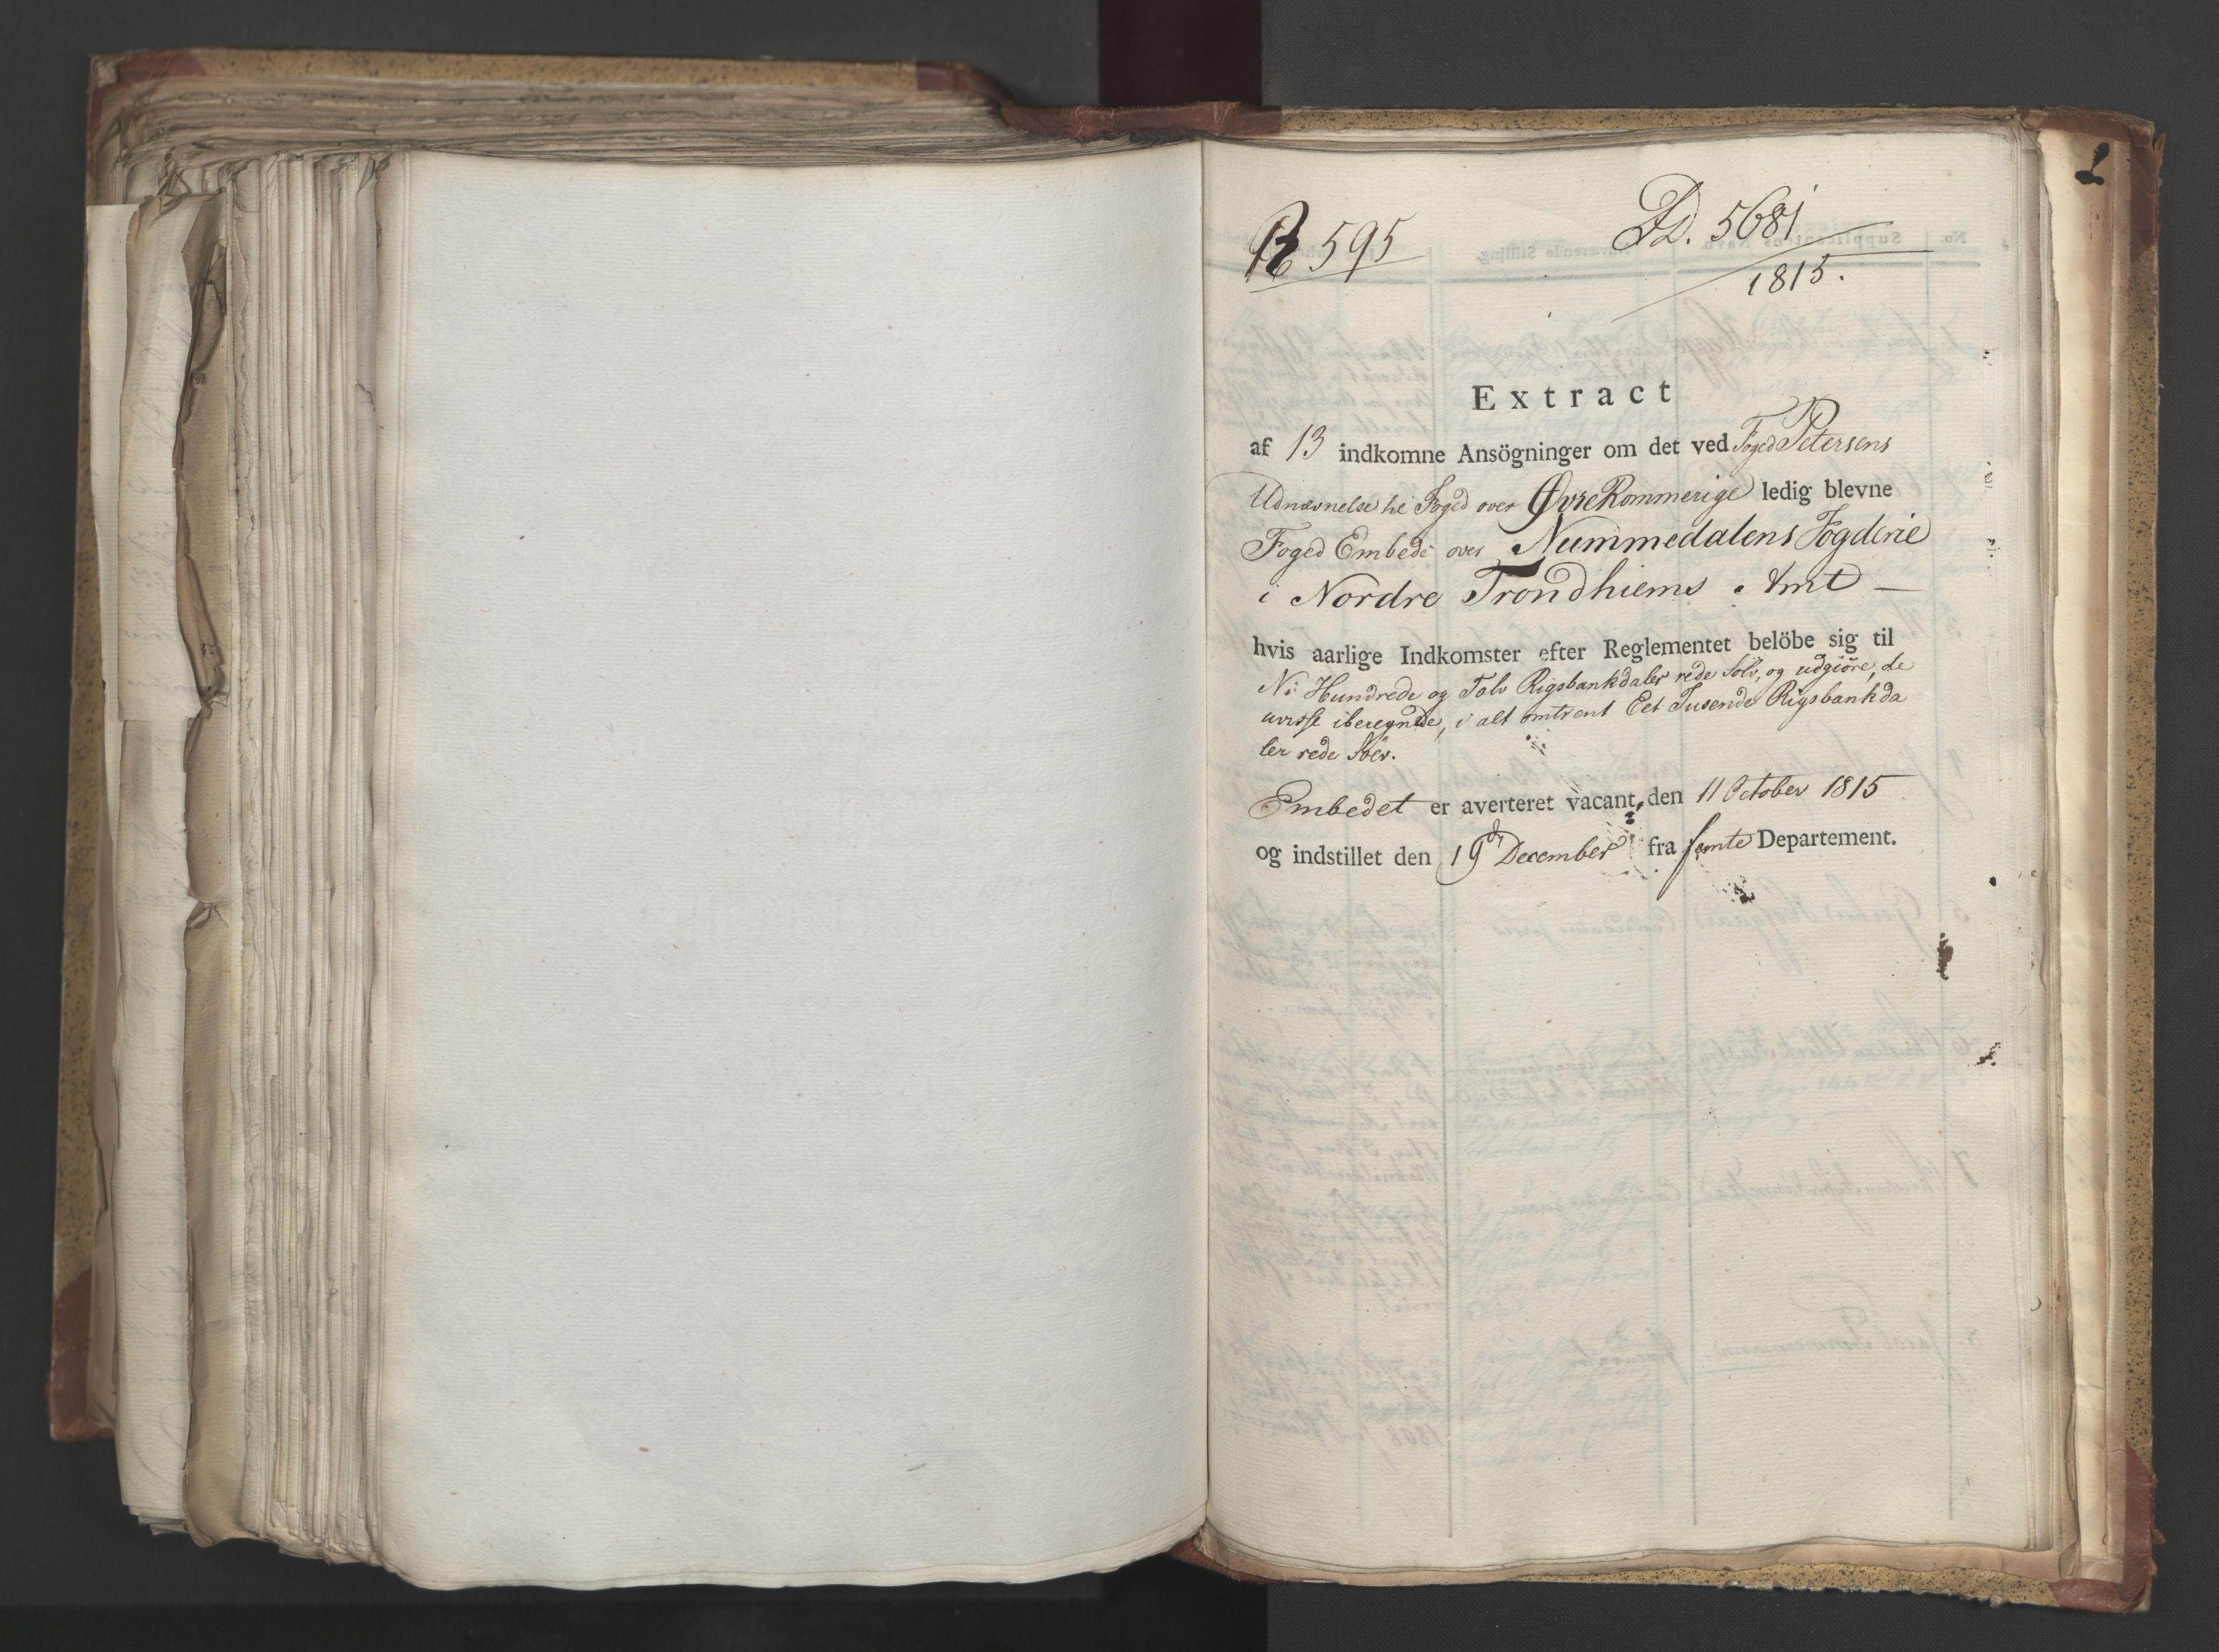 595
5681
1815.
Extract
af 13 indkomne Ansögninger om det ved Foged Petersens
Udnævnelse til Foged over Øvre Rommerige ledig blevne
Foged Embede over Nummedalens Fogderie
i Nordre Trondhiems Amt —
hvis aarlige Indkomster efter Reglementet belöbe sig til
Ni Hundrede og Tolv Rigsbankdaler rede Sölv, og udgiöre, de
uvisse iberegnede, i alt omtrent Eet Tusende Rigsbankda
ler rede Sölv.
Embedet er averteret vacant, den 11 October 1815
og indstillet den 19de December fra femte Departement.